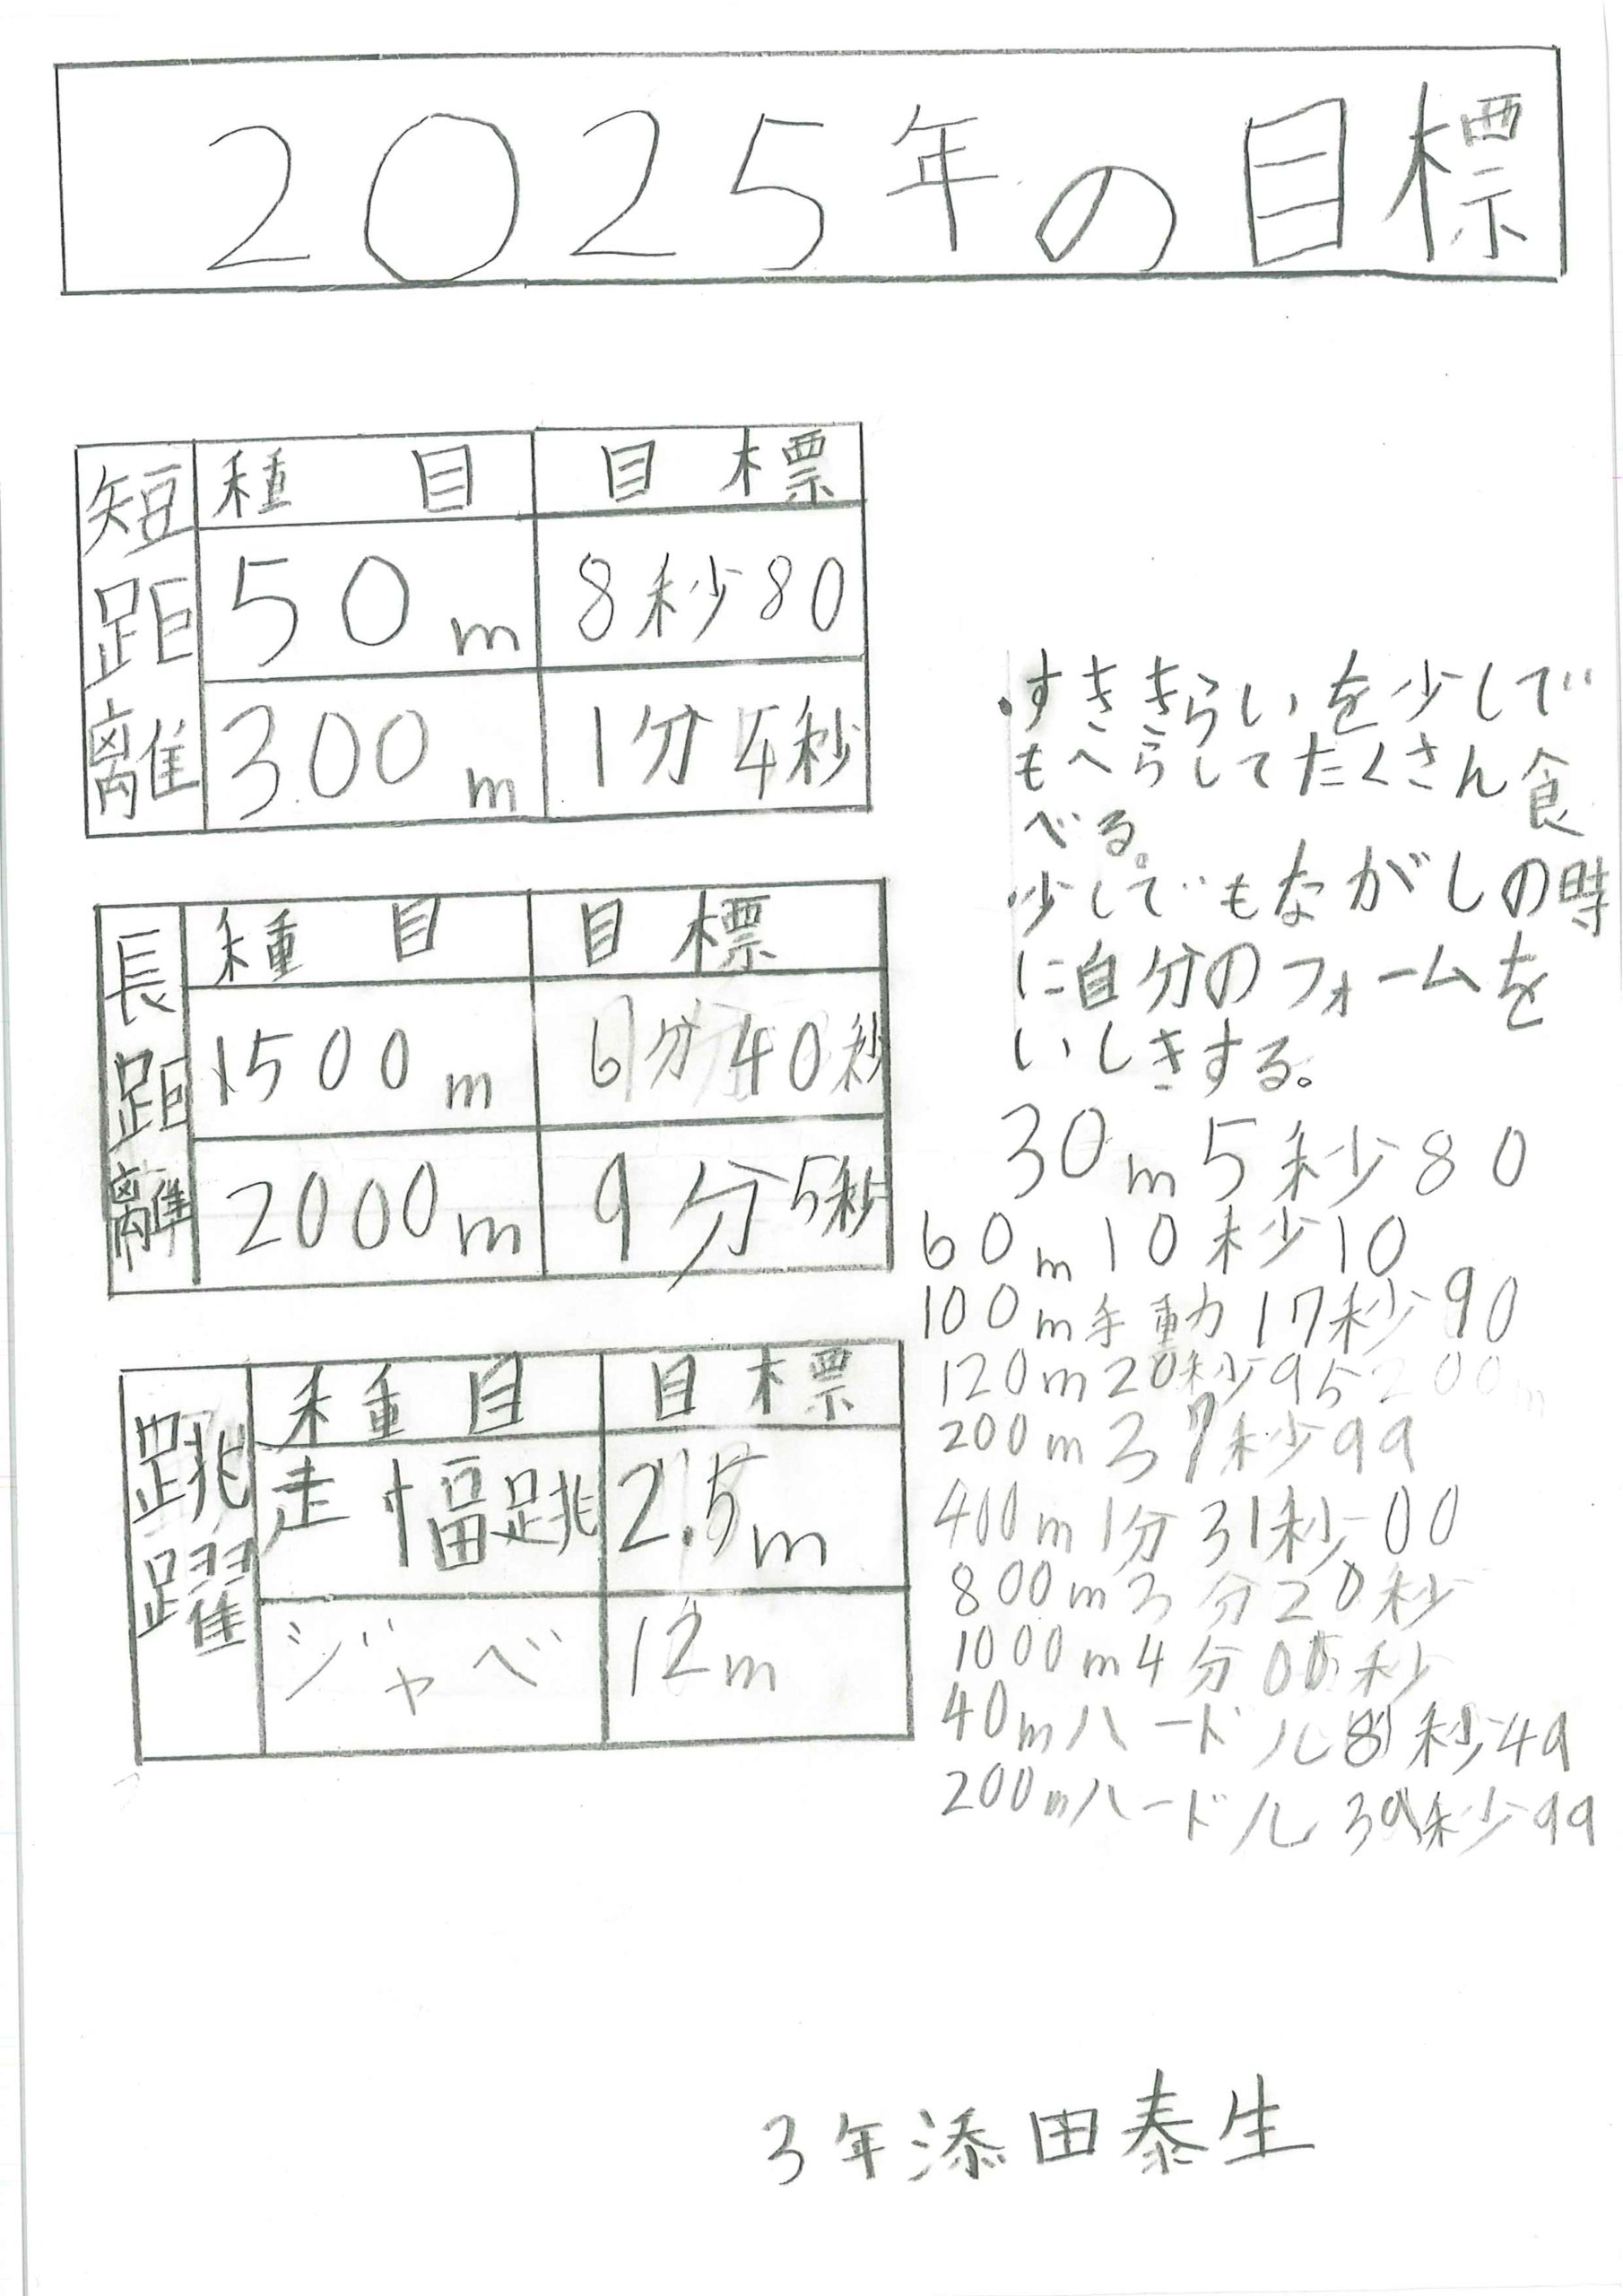 2025年の目標
短距離
種目 目標
50m 8秒80
300m 1分4秒
長距離
種目 目標
1500m 6分40秒
2000m 9分5秒
跳躍
種目 目標
走幅跳 2.5m
ジャベ 12m
・すききらいを少しで
もへらしてたくさん食
べる。
・少しでもながしの時
に自分のフォームを
いしきする。
30m5秒80
60m10秒10
100m手動17秒90
120m20秒95
200m37秒99
400m1分31秒00
800m3分20秒
1000m4分05秒
40mハードル8秒49
200mハードル39秒99
3年添田泰生